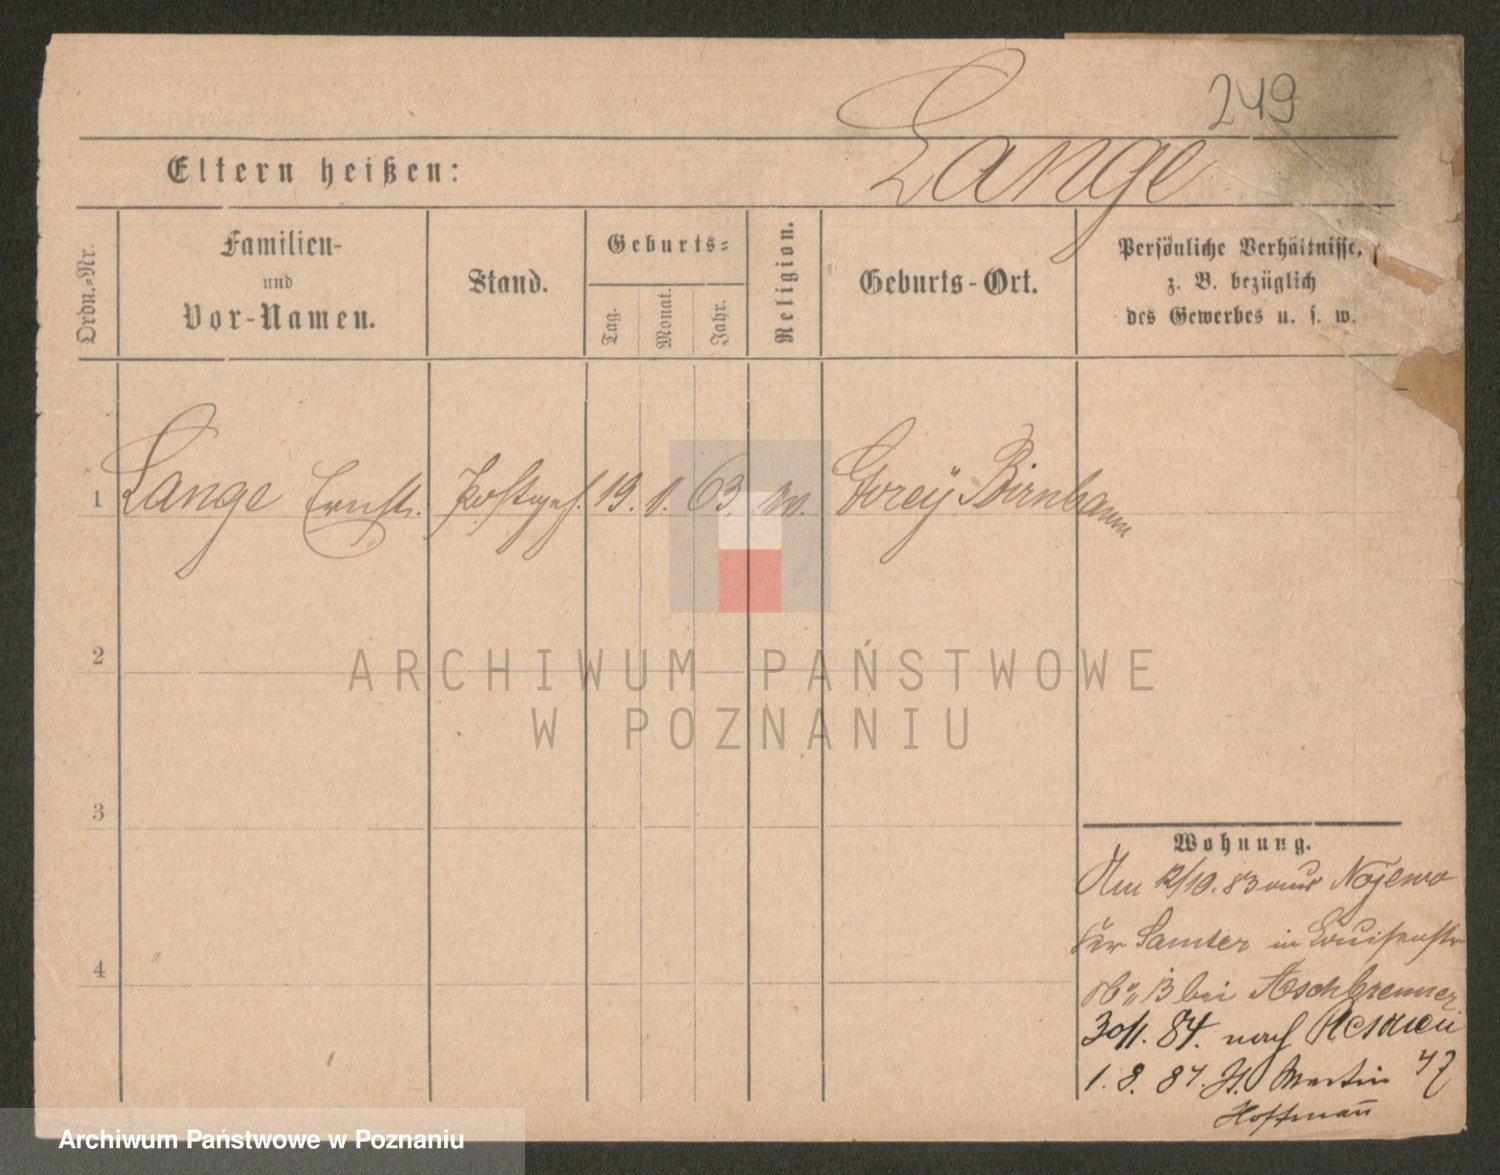 249
Eltern heißen: Lange
Ordn.-Nr.
Familien-
und
Vor-Namen.
Stand.
Geburts-
Tag.
Monat.
Jahr.
Religion.
Geburts-Ort.
Persönliche Verhältnisse,
z. B. bezüglich
des Gewerbes u. s. w.
1 Lange Ernst. Postgeh. 19. 1. 63. Birnbaum
2
3
4
Wohnung.
Am 12/10. 83 aus Nojewo
Kr Samter in Louisenstr
bei Aschbrenner
30/1. 84. nach
1. 8. 87. St. Martin 47
Hoffmann
ARCHIWUM PAŃSTWOWE
W POZNANIU
Archiwum Państwowe w Poznaniu